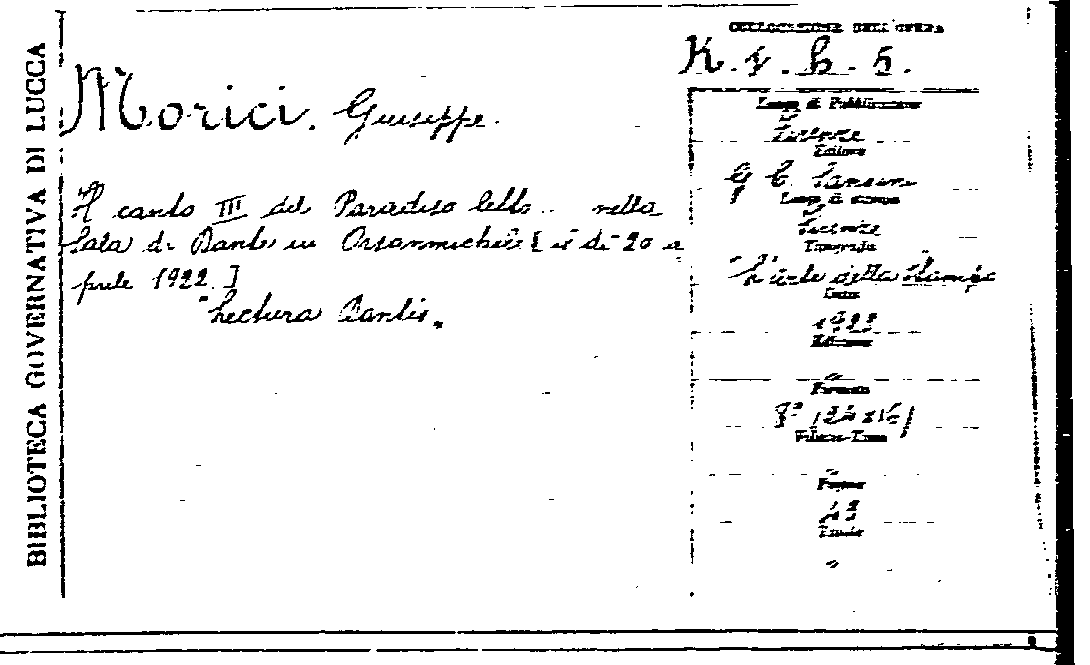 BIBLIOTECA GOVERNATIVA DI LUCCA
COLLOCAZIONE DELL'OPERA
K. 1. b. 5.
Morici. Giuseppe.
Il canto III del Paradiso letto .. nella
Sala di Dante in Orsanmichele [il di 20 a
prile 1922.]
"Lectura Dantis„
Luogo di Pubblicazione
Firenze
Editore
G C. Sansoni
Luogo di stampa
Firenze
Tipografia
"L'arte della Stampa
Data
1922
Edizione
"
Formato
8° (24x16)
Volume-Tomo
"
Pagine
Tavole
"